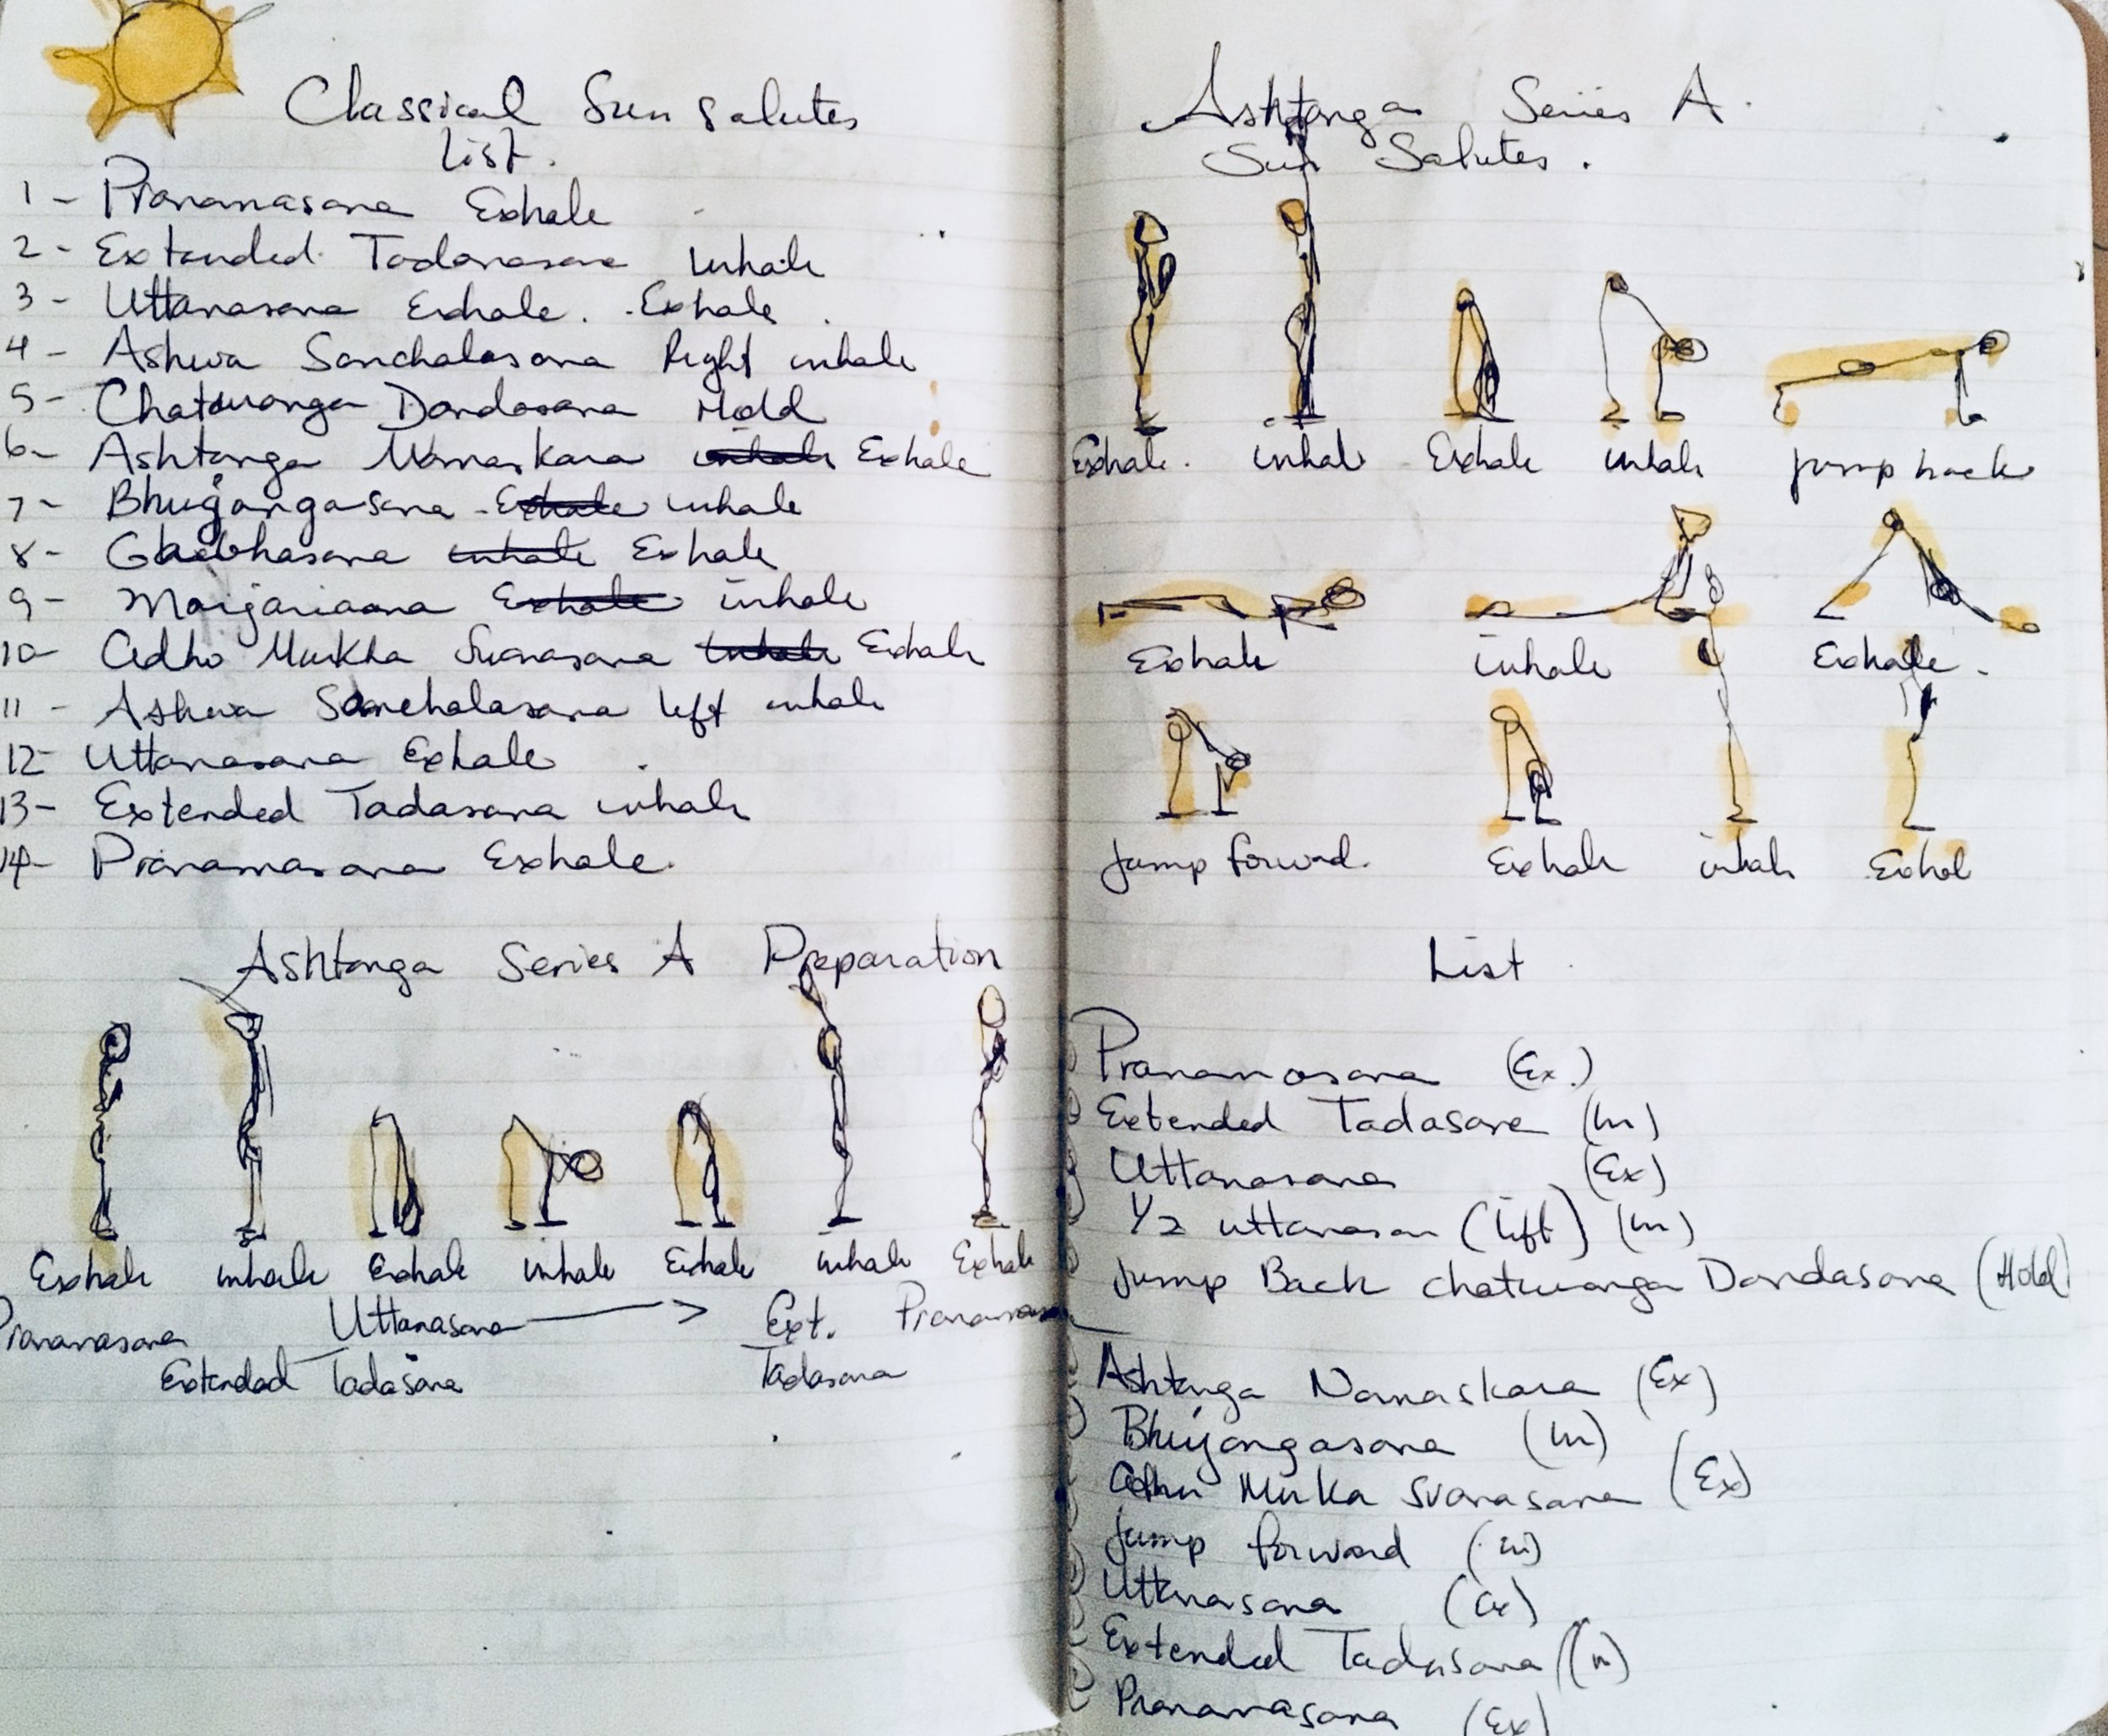 Classical Sun Salutes
List.
1- Pranamasana Exhale
2- Extended Tadanasana inhale
3- Uttanasana Exhale. Exhale
4- Ashwa Sanchalasana Right inhale
5- Chatwanga Dandasana Hold
6- Ashtanga Namaskara inhale Exhale
7- Bhujangasana - Exhale inhale
8- Gharbhasana inhale Exhale
9- Marjariasana Exhale inhale
10- Adho Mukha Svanasana Inhale Exhale
11- Ashwa Sanchalasana left inhale
12- Uttanasana Exhale
13- Extended Tadasana inhale
14- Pranamasana Exhale.
Ashtanga Series A Preparation
Exhale inhale Exhale inhale Exhale inhale Exhale
Pranamasana Uttanasana Ext. Pranamasana
Extended Tadasana Tadasana
Ashtanga Series A.
Sun Salutes.
Exhale. inhale Exhale inhale jump back
Exhale inhale Exhale.
jump forward. Exhale inhale Exhal
List
Pranamasana (Ex.)
Extended Tadasana (In)
Uttanasana (Ex)
1/2 uttanasan (lift) (In)
jump Back chatwanga Dandasana (Hold)
Ashtanga Namaskara (Ex)
Bhujangasana (In)
Adho Muka Svanasana (Ex)
jump forward (in)
Uttanasana (Ex)
Extended Tadasana (In)
Pranamasana (Ex)